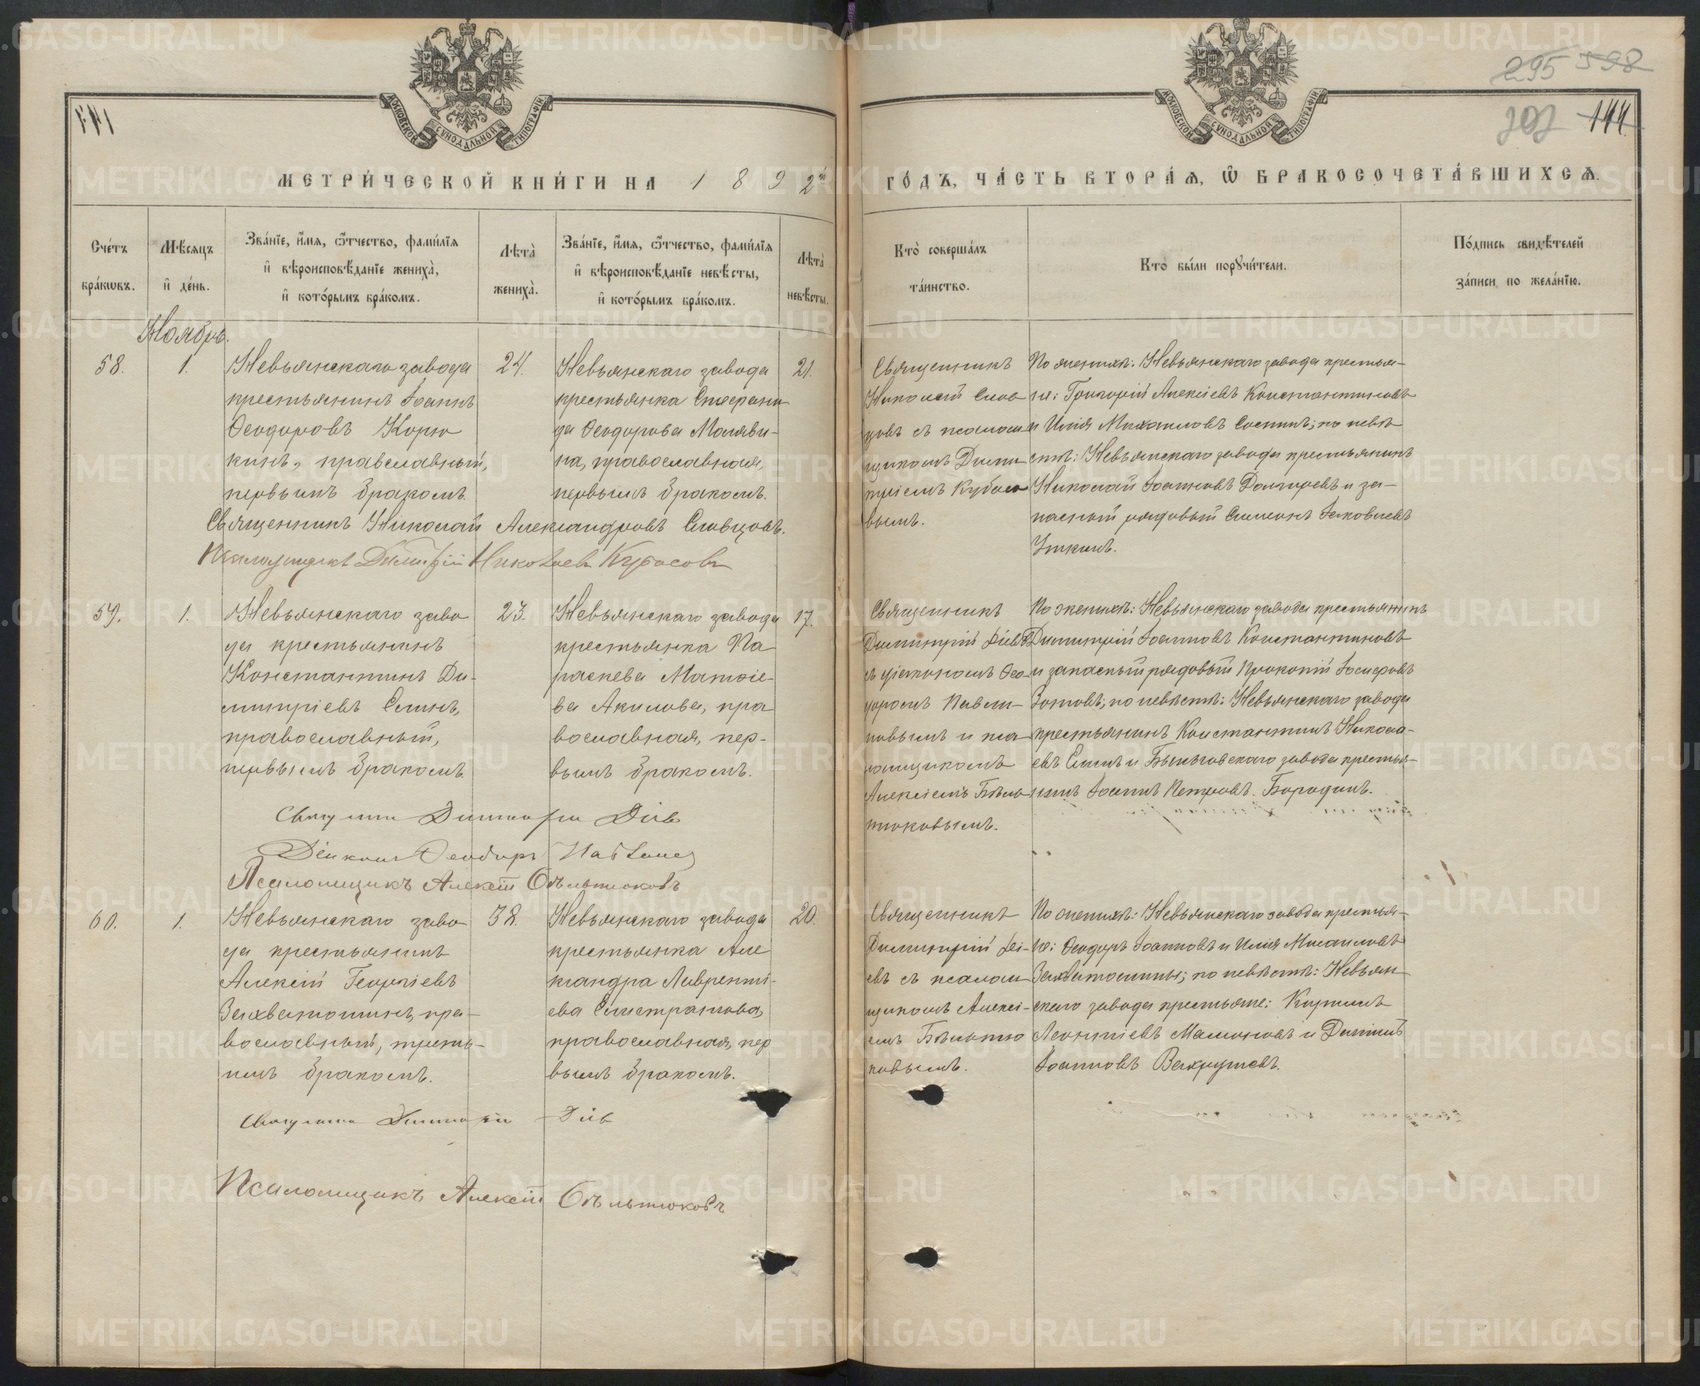 295 598
202 144
МОСКОВСКОЙ СѴНОДАЛЬНОЙ ТИПОГРАФІИ
МОСКОВСКОЙ СѴНОДАЛЬНОЙ ТИПОГРАФІИ
МЕТРИ́ЧЕСКОЙ КНИ́ГИ НА 1892й ГО́ДЪ, ЧА́СТЬ ВТОРА́Ѧ, Ѡ БРАКОСОЧЕТА́ВШИХСѦ.
Сче́тъ
бра́кѡвъ.
Мѣ́сяцъ
и҆ де́нь.
Зва́нїе, и҆́мя, ѻ҆́тчество, фами́лїя
и҆ вѣроисповѣ́данїе жениха̀,
и҆ кото́рымъ бра́комъ.
Лѣ́та̀
жениха̀.
Зва́нїе, и҆́мя, ѻ҆́тчество, фами́лїя
и҆ вѣроисповѣ́данїе невѣ́сты,
и҆ кото́рымъ бра́комъ.
Лѣ́та̀
невѣ́сты.
Кто̀ соверша́лъ
та́инство.
Кто̀ бы́ли порꙋчи́тели.
По́дпись свидѣ́телей
за́писи по жела́нїю.
Ноябрь.
58.
1.
Невьянскаго завода
крестьянинъ Іоаннъ
Ѳеодоровъ Корю
кинъ, православный,
первымъ бракомъ.
24.
Невьянскаго завода
крестьянка Стефани
да Ѳеодорова Маляви-
на, православная,
первымъ бракомъ.
21.
Священникъ
Николай Слов
цовъ съ псалом
щикомъ Дими
тріемъ Кубасо
вымъ.
По женихѣ: Невьянскаго завода крестья-
не: Григорій Алексіевъ Константиновъ
и Илія Михаиловъ Соснинъ; по невѣ
стѣ: Невьянскаго завода крестьянинъ
Николай Іоанновъ Долгиревъ и за-
пасный рядовый Симеонъ Іаковлевъ
Уткинъ.
Священникъ Николай Александровъ Словцовъ.
Псаломщикъ Димитрій Николаевъ Кубасовъ
59.
1.
Невьянскаго заво
да крестьянинъ
Константинъ Ди-
митріевъ Еминъ,
православный,
первымъ бракомъ
23.
Невьянскаго завода
крестьянка Па
раскева Матѳіе-
ва Акилова, пра
вославная, пер-
вымъ бракомъ.
17.
Священникъ
Димитрій Діевъ
съ діакономъ Ѳео-
доромъ Павли-
новымъ и пса-
ломщикомъ
Алексіемъ Бѣль
тюковымъ.
По женихѣ: Невьянскаго завода крестьянинъ
Димитрій Іоанновъ Константиновъ
и запасный рядовый Прокопій Іосифовъ
Зотовъ; по невѣстѣ: Невьянскаго завода
крестьянинъ Константинъ Никола-
евъ Еминъ и Быньговскаго завода крестья-
нинъ Іоаннъ Петровъ Бородинъ.
Священникъ Димитрій Діевъ
Діаконъ Ѳеодоръ Павлиновъ
Псаломщикъ Алексій Бѣльтюковъ
60.
1.
Невьянскаго заво
да крестьянинъ
Алексій Георгіевъ
Захватошинъ, пра-
вославный, треть-
имъ бракомъ.
38.
Невьянскаго завода
крестьянка Але
ксандра Лаврентi-
ева Елистратова,
православная, пер
вымъ бракомъ.
20.
Священникъ
Димитрій Ді-
евъ съ псалом
щикомъ Алексі-
емъ Бѣльтю
ковымъ.
По женихѣ: Невьянскаго завода крестья-
не: Ѳеодоръ Іоанновъ и Илія Михаиловъ
Захватошины; по невѣстѣ: Невьян-
скаго завода крестьяне: Кириллъ
Леонтіевъ Мамоновъ и Даніилъ
Іоанновъ Вахрушевъ.
Священникъ Димитрій Діевъ
Псаломщикъ Алексій Бѣльтюковъ
METRIKI.GASO-URAL.RU